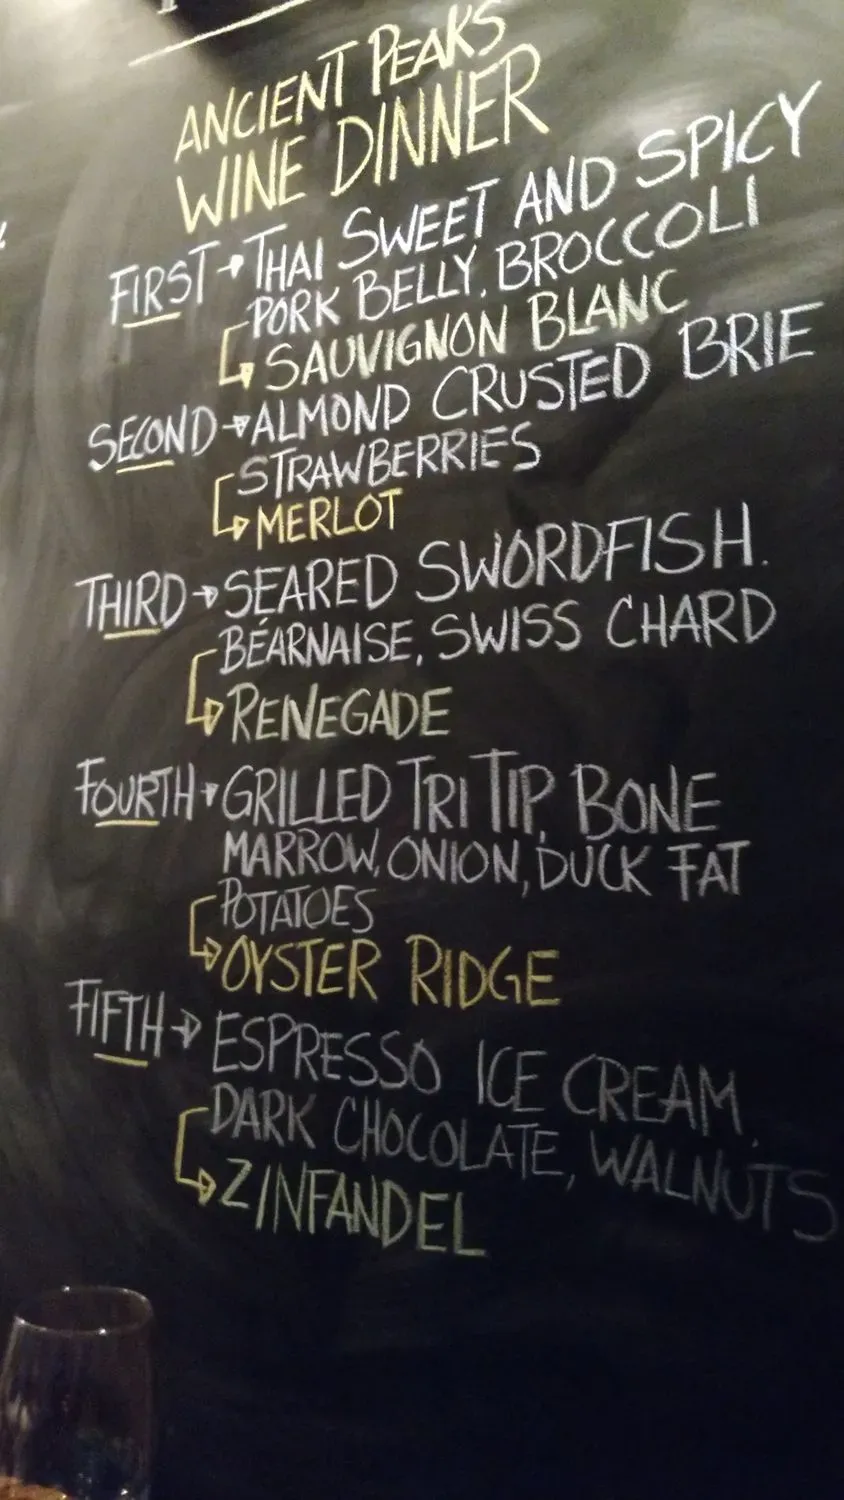 ANCIENT PEAKS
WINE DINNER
FIRST → THAI SWEET AND SPICY
PORK BELLY, BROCCOLI
SAUVIGNON BLANC
SECOND → ALMOND CRUSTED BRIE
STRAWBERRIES
MERLOT
THIRD → SEARED SWORDFISH.
BÉARNAISE, SWISS CHARD
RENEGADE
FOURTH → GRILLED TRI TIP, BONE
MARROW, ONION, DUCK FAT
POTATOES
OYSTER RIDGE
FIFTH → ESPRESSO ICE CREAM,
DARK CHOCOLATE, WALNUTS
ZINFANDEL